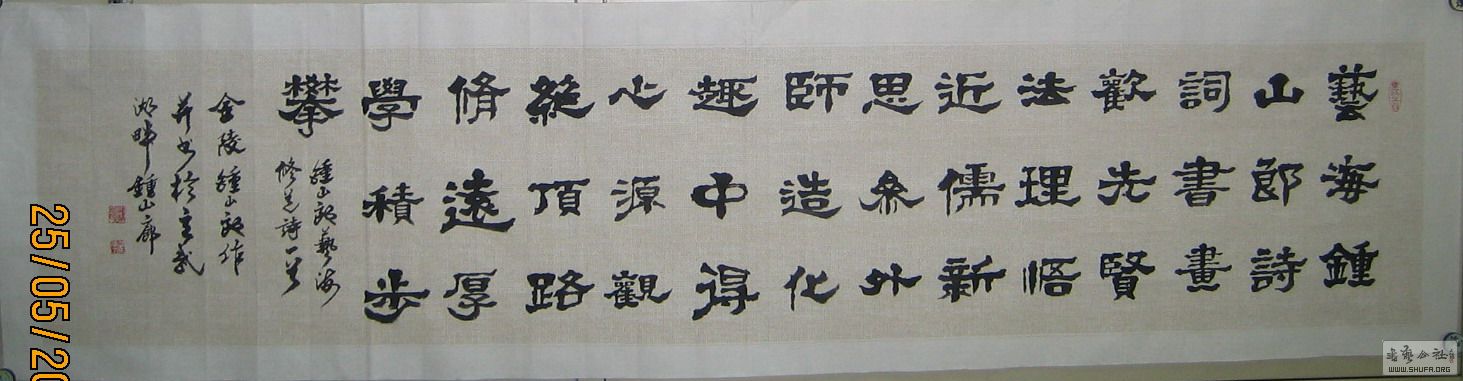 藝海鍾
山郎詩
詞書畫
歡先賢
法理悟
近儒新
思象外
師造化
趣中得
心源觀
巅頂路
脩遠厚
學積步
攀
鍾山郎藝海
修芝詩一首
金陵鍾山郎作
并书於玄武
湖畔鍾山廊
25/05/20
书艺公社
WWW.SHUFA.ORG